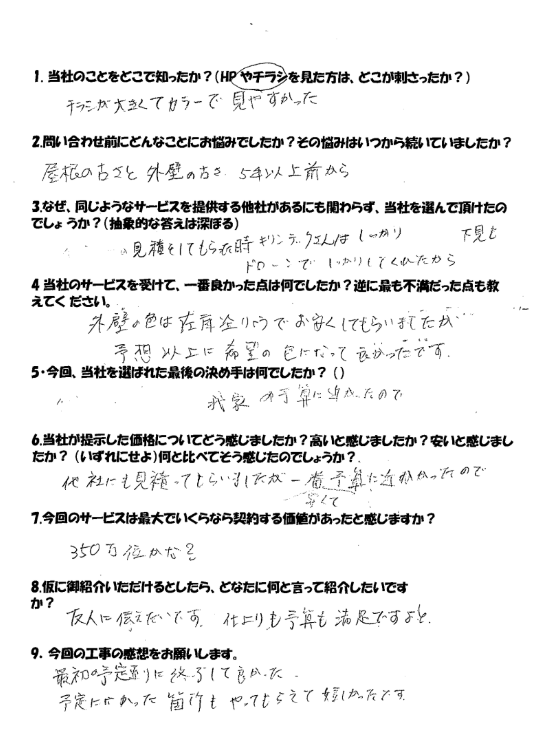 1. 当社のことをどこで知ったか?(HPやチラシを見た方は、どこが刺さったか?)
チラシが大きくてカラーで見やすかった
2.問い合わせ前にどんなことにお悩みでしたか?その悩みはいつから続いていましたか?
屋根の古さと外壁の古さ 5年以上前から
3.なぜ、同じようなサービスを提供する他社があるにも関わらず、当社を選んで頂けたの
でしょうか?(抽象的な答えは深ぼる)
の見積をしてもらった時キリンテックさんは しっかり 下見も
ドローンで しっかりしてくれたから
4 当社のサービスを受けて、一番良かった点は何でしたか?逆に最も不満だった点も教
えてください。
外壁の色は お安くしてもらいましたが…
予想以上に希望の色になって良かったです.
5・今回、当社を選ばれた最後の決め手は何でしたか?()
我家の予算に近かったので
6.当社が提示した価格についてどう感じましたか?高いと感じましたか?安いと感じまし
たか?(いずれにせよ)何と比べてそう感じたのでしょうか?.
他社にも見積ってもらいましたが一番予算に近かったので
安くて
7.今回のサービスは最大でいくらなら契約する価値があったと感じますか?
350万位かな?
8.仮に御紹介いただけるとしたら、どなたに何と言って紹介したいです
か?
友人に伝えたいです. 仕上りも予算も満足ですよと.
9. 今回の工事の感想をお願いします。
最初の予定通りに終了して良かった.
予定になかった箇所もやってもらえて嬉しかったです.